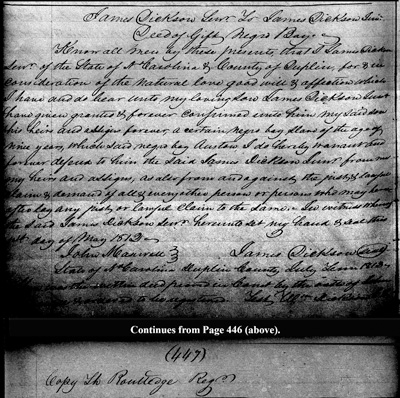 James Dickson Senr. To James Dickson Junr.
Deed of Gift, Negro Boy
Know all men by these presents, that I James Dickson
Senr. of the State of N Carolina & County of Duplin, for & in
consideration of the natural love good will & affection which
I have and do bear unto my loving son James Dickson Junr
have given granted & forever confirmed unto him my said son
his heirs and assigns forever, a certain negro boy slave of the age of
nine years, which said negro boy I do hereby warrant and
forever defend to him the said James Dickson Junr from me
my heirs and assigns, as also from and against the just & lawful
claim & demand of all & every other person or persons who may have
any just or lawful claim to the same. In witness whereof
I the said James Dickson Senr. hereunto set my hand & seal this
day of May 1813
John Maxwell James Dickson
State of N Carolina Duplin County July Term 1813
was the written deed proved in Court by the oath of
& ordered to be registered. Test Wm Dickson
Continues from Page 446 (above).
(447)
Copy Th Routledge Regr